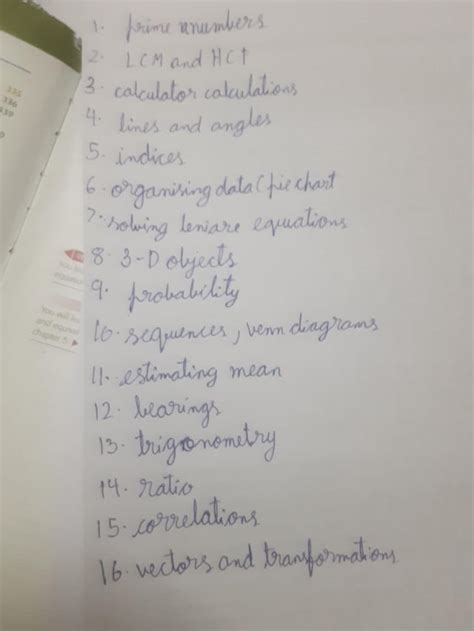 335
336
339
1. prime nnumbers
2. LCM and HCF
3. calculator calculations
4. lines and angles
5. indices
6. organising data (pie chart
7. solving leniare equations
8. 3-D objects
9. probability
10. sequences, venn diagrams
11. estimating mean
12. bearings
13. trigonometry
14. ratio
15. correlations
16. vectors and transformations
You will
equation
You will
and equival
chapter 5